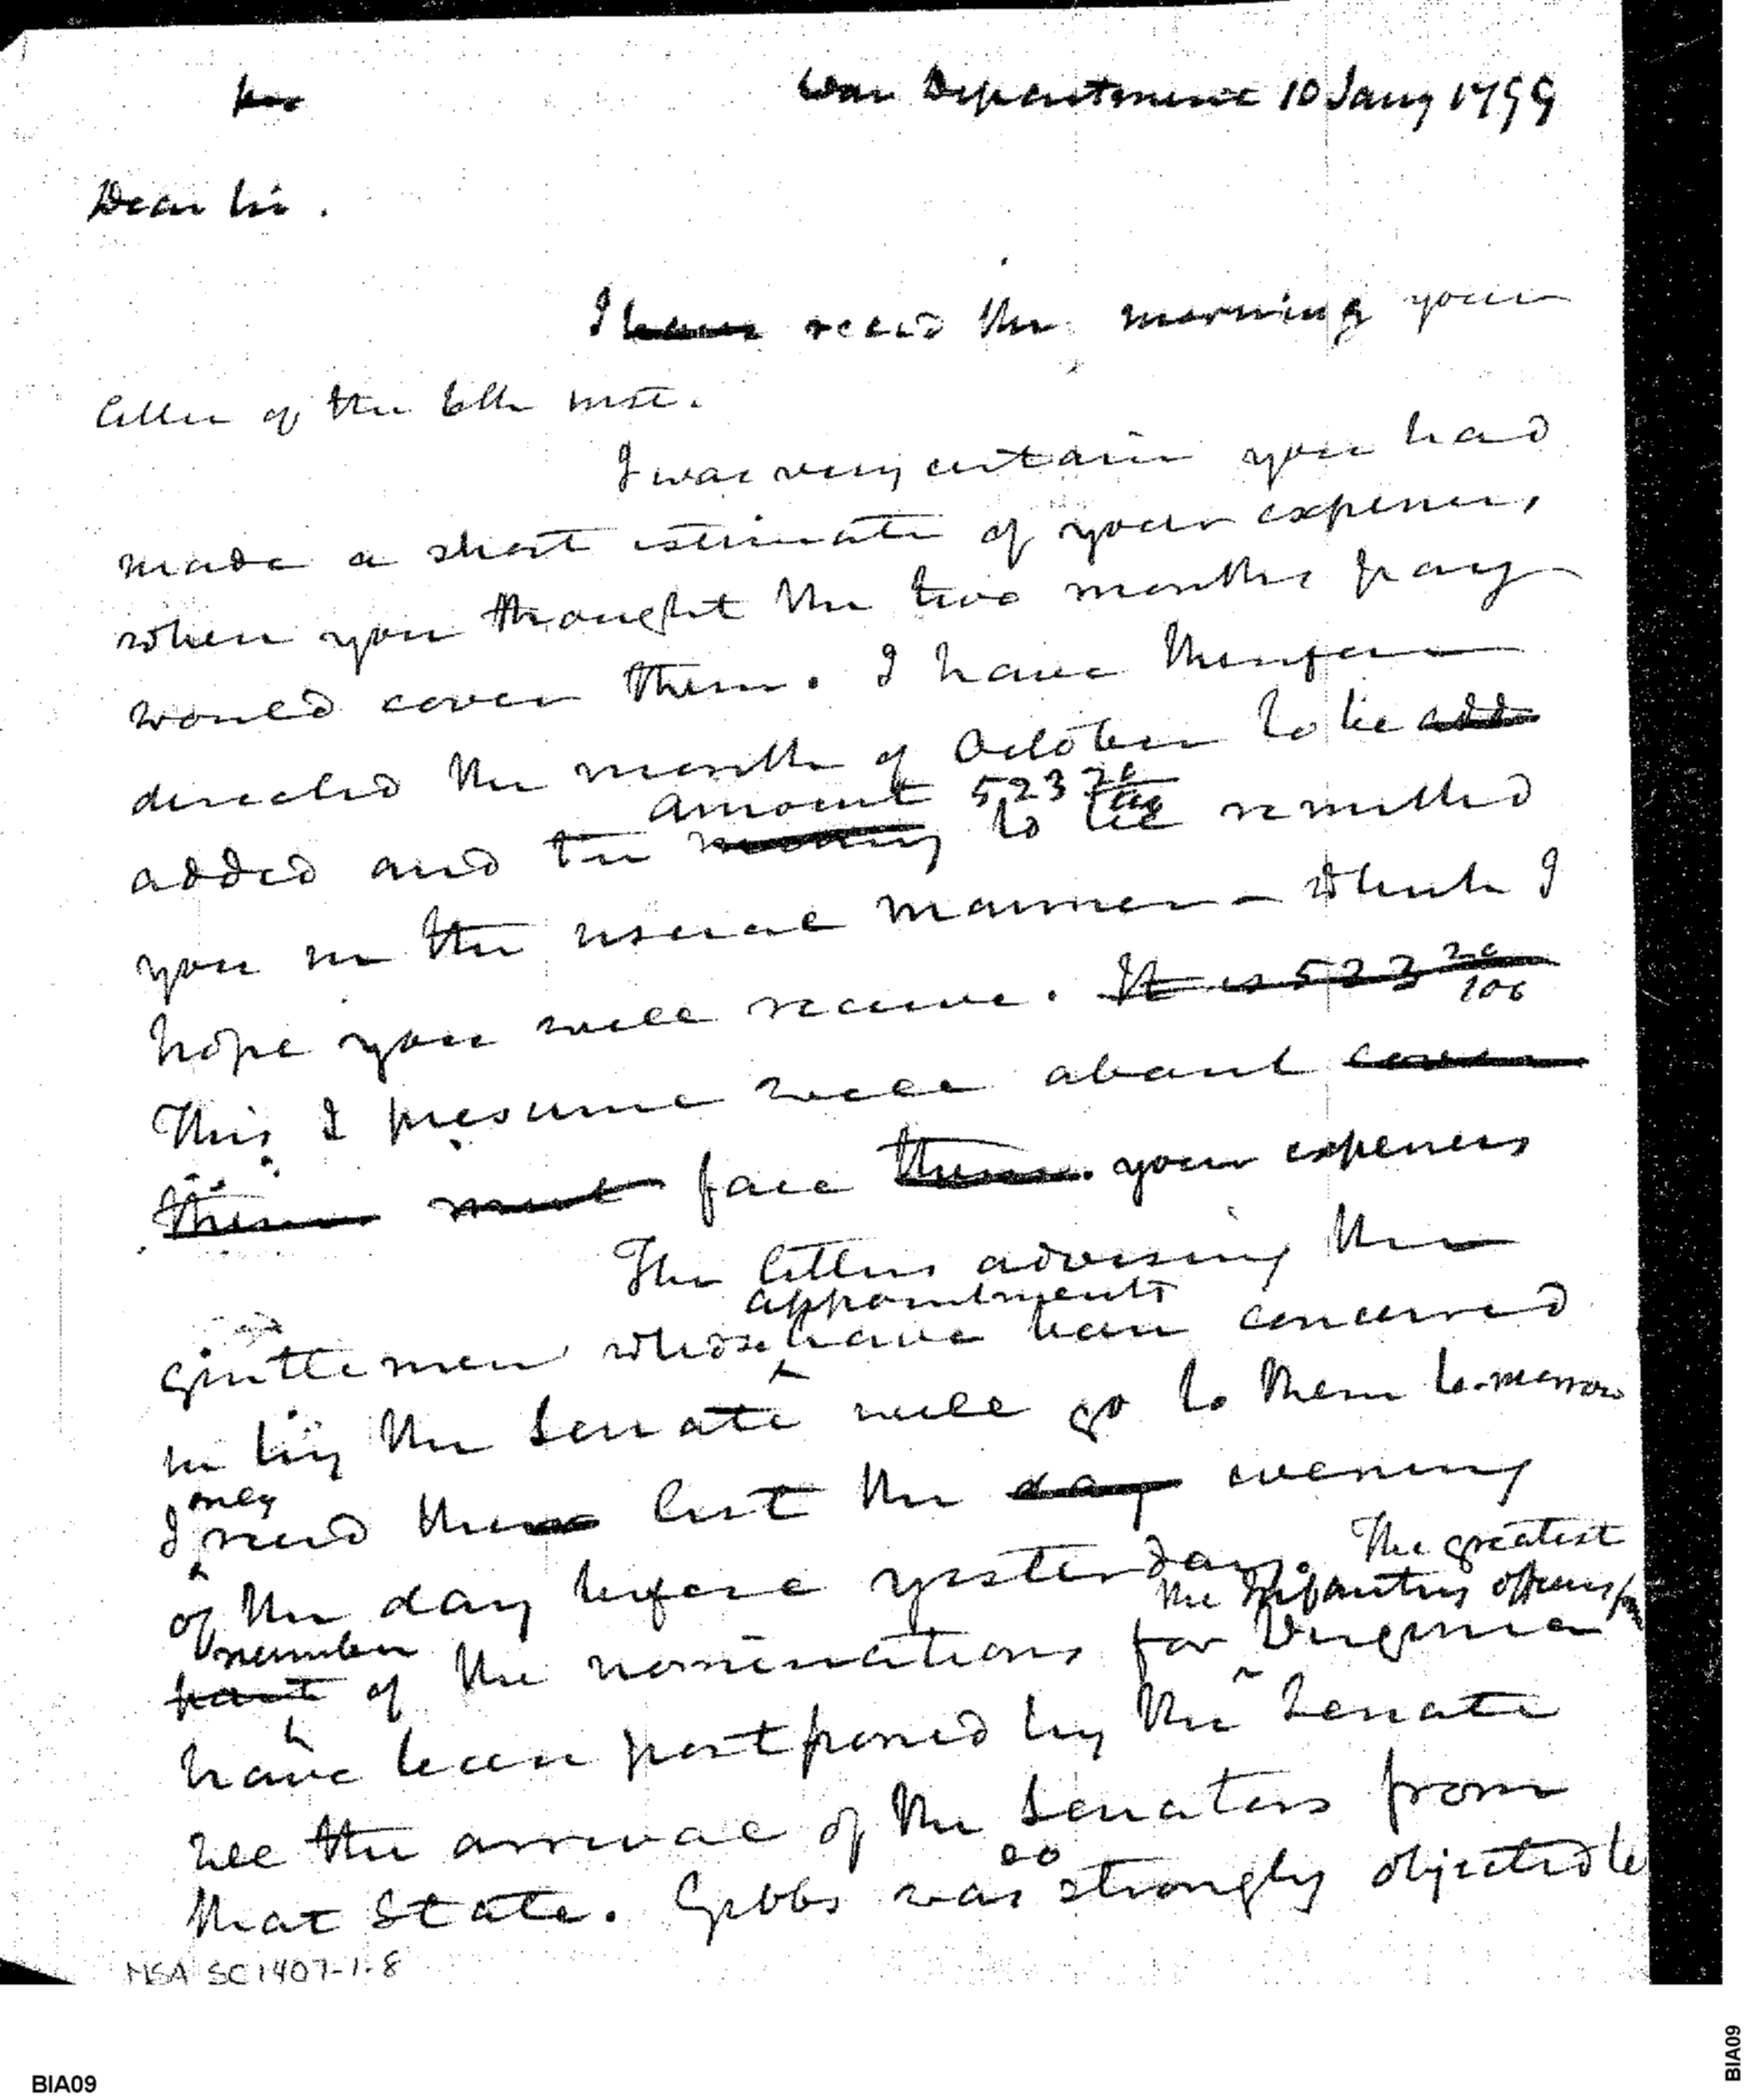 War Department 10 Jany 1799
Dear Sir.
I have recd this morning your
letter of the 6th inst.
I was very certain you had
made a short estimate of your expenses,
when you thought the two months pay
would cover them. I have therefore
directed the month of October to be add
amount 523 20/100
added and the money to be remitted
you in the usual manner – which I
hope you will receive. It is 523 20/100
This I presume will about cover
them must face them. your expenses
The letters advising the
appointments
gentlemen whose have been concurred
in by the Senate will go to them to-morrow
only
I recd the list the day evening
of the day before yesterday. The greatest
the Infantry officers for
number
part of the nominations for Virginia
have been postponed by the Senate
till the arrival of the Senators from
so
that State. Gibbs was strongly objected to
MSA SC1407-1-8
BIA09
BIA09